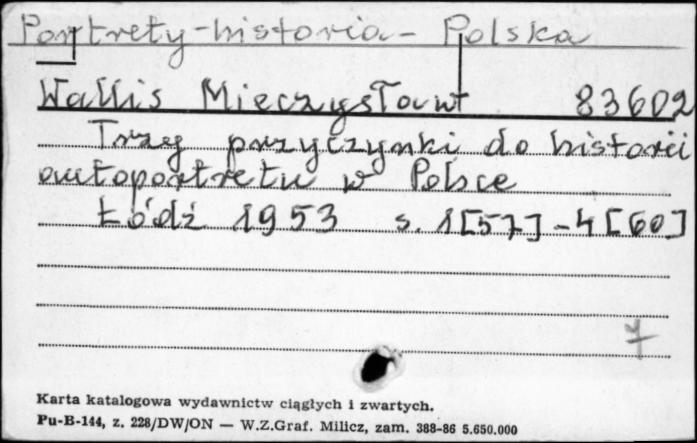 Portrety - historia - Polska
Wallis Mieczysław 83602
Trzy przyczynki do historii
autoportretu w Polsce
Łódź 1953 s. 1[57]-4[60]
7
Karta katalogowa wydawnictw ciągłych i zwartych.
Pu-B-144, z. 228/DW/ON — W.Z.Graf. Milicz, zam. 388-86 5.650.000